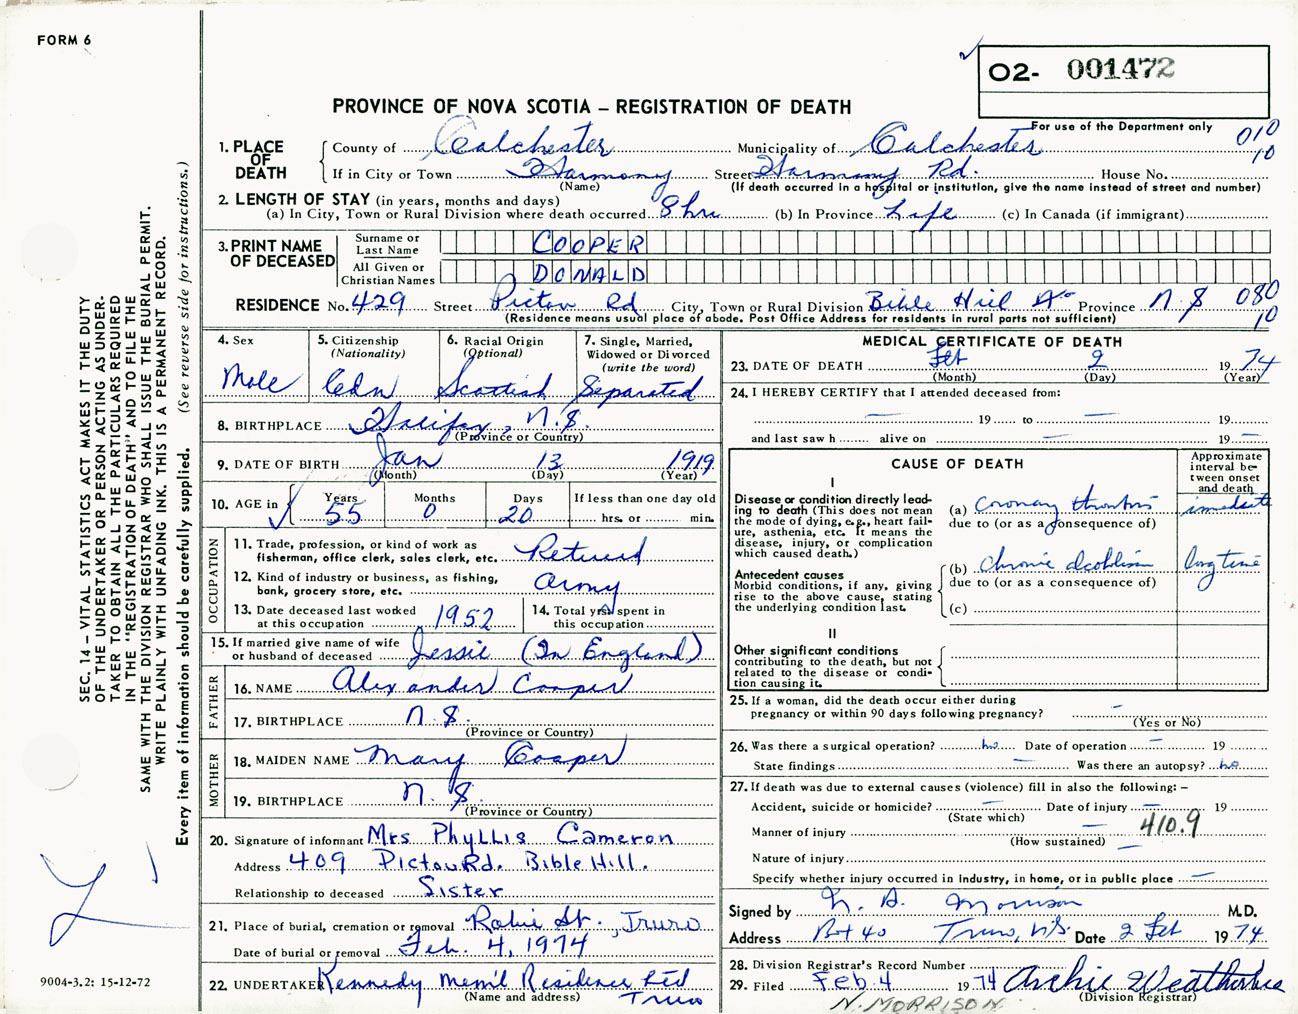 FORM 6
O2- 001472
PROVINCE OF NOVA SCOTIA – REGISTRATION OF DEATH
For use of the Department only
010
10
1. PLACE OF DEATH
County of Colchester Municipality of Colchester
If in City or Town Harmony Street Harmony Rd. House No.
(Name) (If death occurred in a hospital or institution, give the name instead of street and number)
2. LENGTH OF STAY (in years, months and days)
(a) In City, Town or Rural Division where death occurred 8 hrs (b) In Province Life (c) In Canada (if immigrant)
3. PRINT NAME OF DECEASED
Surname or Last Name COOPER
All Given or Christian Names DONALD
RESIDENCE No. 429 Street Pictou Rd City, Town or Rural Division Bible Hill Province N.S 080
(Residence means usual place of abode. Post Office Address for residents in rural parts not sufficient) 10
4. Sex
Male
5. Citizenship
(Nationality)
Cdn
6. Racial Origin
(Optional)
Scottish
7. Single, Married,
Widowed or Divorced
(write the word)
Separated
8. BIRTHPLACE Halifax, N.S.
(Province or Country)
9. DATE OF BIRTH Jan 13 1919
(Month) (Day) (Year)
10. AGE in Years Months Days If less than one day old
55 0 20 hrs. or min.
OCCUPATION
11. Trade, profession, or kind of work as
fisherman, office clerk, sales clerk, etc. Retired
12. Kind of industry or business, as fishing,
bank, grocery store, etc. Army
13. Date deceased last worked
at this occupation 1952
14. Total yrs spent in
this occupation
15. If married give name of wife
or husband of deceased Jessie (In England)
FATHER
16. NAME Alexander Cooper
17. BIRTHPLACE N.S.
(Province or Country)
MOTHER
18. MAIDEN NAME Mary Cooper
19. BIRTHPLACE N.S.
(Province or Country)
20. Signature of informant Mrs Phyllis Cameron
Address 409 Pictou Rd. Bible Hill.
Relationship to deceased Sister
21. Place of burial, cremation or removal Robie St., Truro
Date of burial or removal Feb. 4, 1974
22. UNDERTAKER Kennedy Mem'l Residence Ltd
(Name and address) Truro
MEDICAL CERTIFICATE OF DEATH
23. DATE OF DEATH Feb 2 1974
(Month) (Day) (Year)
24. I HEREBY CERTIFY that I attended deceased from:
— 19 — to — 19 —
and last saw h alive on — 19 —
CAUSE OF DEATH
Approximate interval between onset and death
I
Disease or condition directly leading to death (This does not mean the mode of dying, e.g., heart failure, asthenia, etc. It means the disease, injury, or complication which caused death.)
(a) Coronary thrombosis immediate
due to (or as a consequence of)
Antecedent causes
Morbid conditions, if any, giving rise to the above cause, stating the underlying condition last.
(b) chronic alcoholism long time
due to (or as a consequence of)
(c)
II
Other significant conditions
contributing to the death, but not related to the disease or condition causing it.
25. If a woman, did the death occur either during
pregnancy or within 90 days following pregnancy? —
(Yes or No)
26. Was there a surgical operation? no Date of operation — 19
State findings — Was there an autopsy? no
27. If death was due to external causes (violence) fill in also the following: –
Accident, suicide or homicide? — Date of injury — 19
(State which)
Manner of injury — 410.9
(How sustained) —
Nature of injury
Specify whether injury occurred in industry, in home, or in public place —
Signed by N. A. Morrison M.D.
Address Box 40 Truro, N.S. Date 2 Feb 1974
28. Division Registrar's Record Number
29. Filed Feb 4 1974 Archie Weatherbee
(Division Registrar)
N. MORRISON
SEC. 14 – VITAL STATISTICS ACT MAKES IT THE DUTY
OF THE UNDERTAKER OR PERSON ACTING AS UNDER-
TAKER TO OBTAIN ALL THE PARTICULARS REQUIRED
IN THE "REGISTRATION OF DEATH" AND TO FILE THE
SAME WITH THE DIVISION REGISTRAR WHO SHALL ISSUE THE BURIAL PERMIT.
WRITE PLAINLY WITH UNFADING INK. THIS IS A PERMANENT RECORD.
Every item of information should be carefully supplied. (See reverse side for instructions.)
9004-3.2: 15-12-72